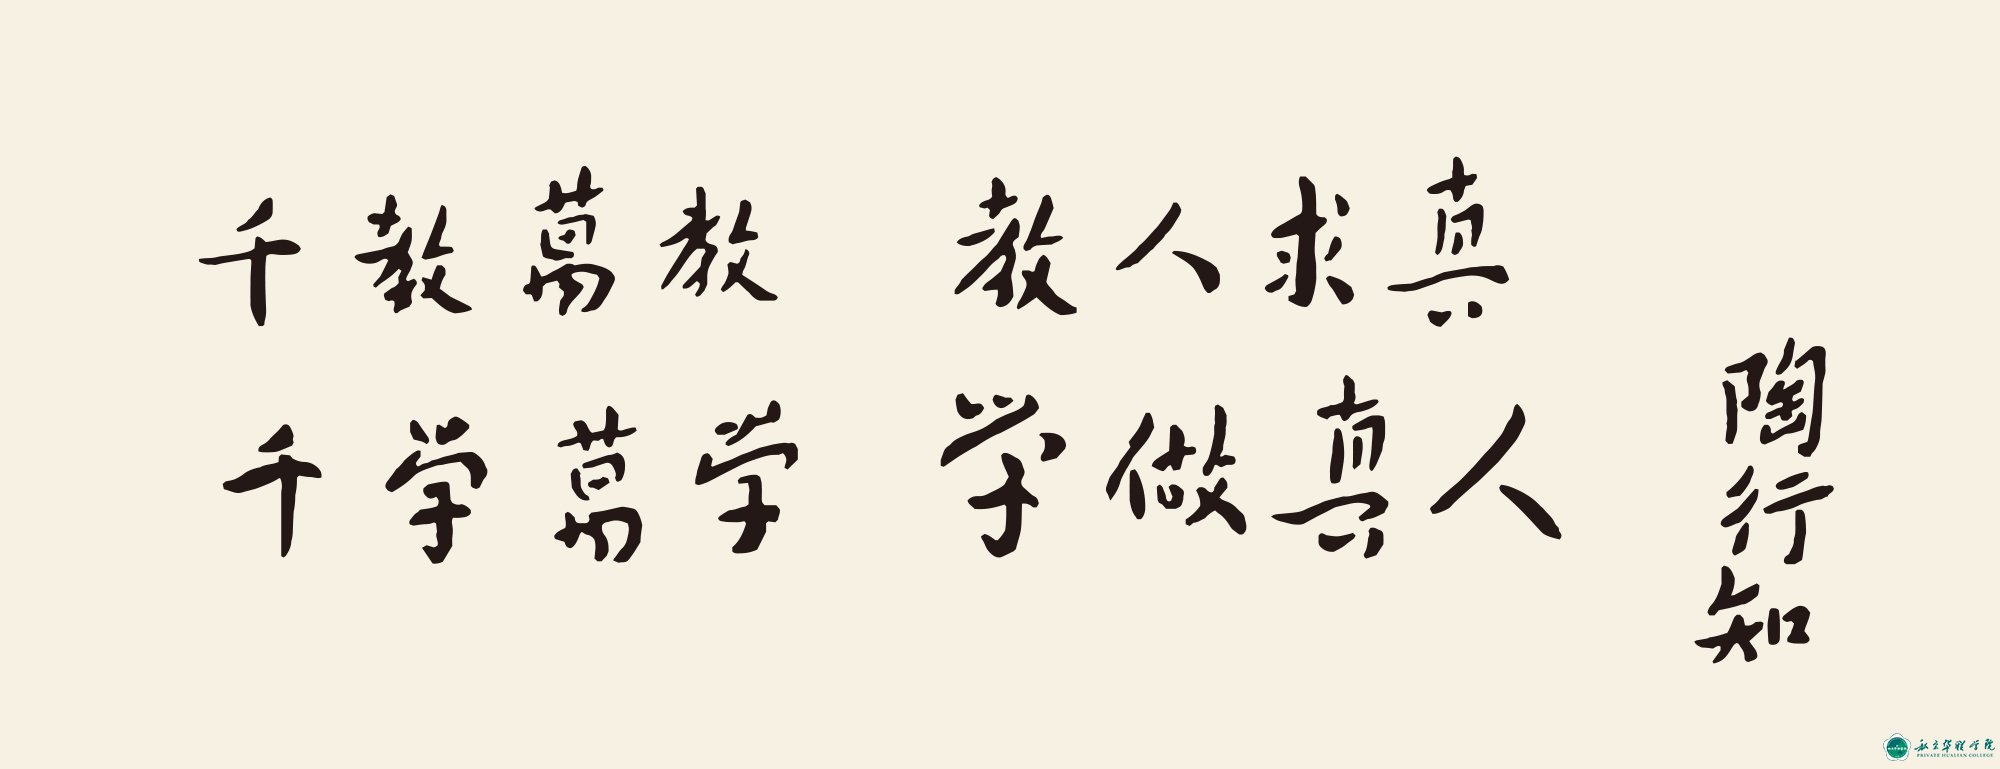 千教萬教 教人求真
千学萬学 学做真人
陶行知
私立华联学院
PRIVATE HUALIAN COLLEGE